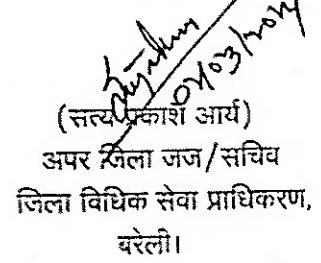 07/03/2024
(सत्य प्रकाश आर्य)
अपर जिला जज/सचिव
जिला विधिक सेवा प्राधिकरण,
बरेली।